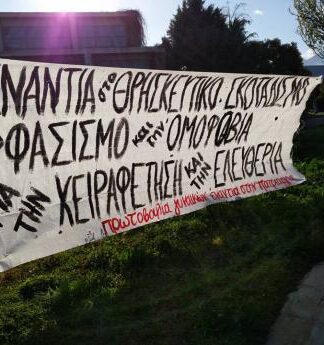 ΝΑΝΤΙΑ στο ΘΡΗΣΚΕΥΤΙΚΟ ΣΚΟΤΑΔΙΣΜΟ
ΦΑΣΙΣΜΟ και την ΟΜΟΦΟΒΙΑ
ΓΙΑ ΤΗΝ ΧΕΙΡΑΦΕΤΗΣΗ ΚΑΙ ΤΗΝ ΕΛΕΥΘΕΡΙΑ
πρωτοβουλία γυναικών ενάντια στην πατριαρχία